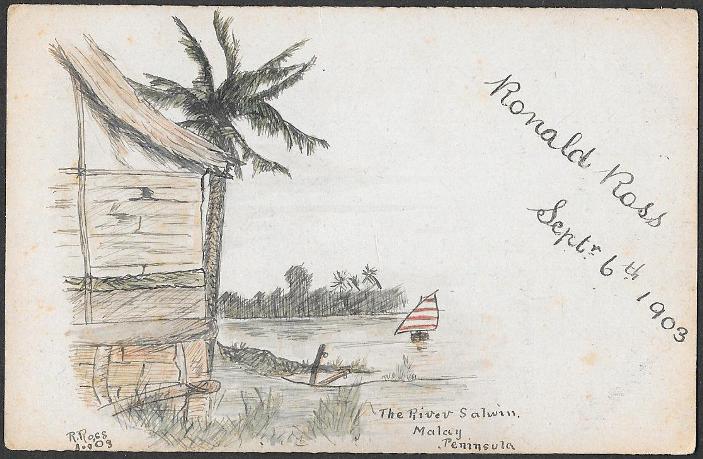 Ronald Ross
Septr. 6th 1903
The River Salwin.
Malay
Peninsula
R. Ross